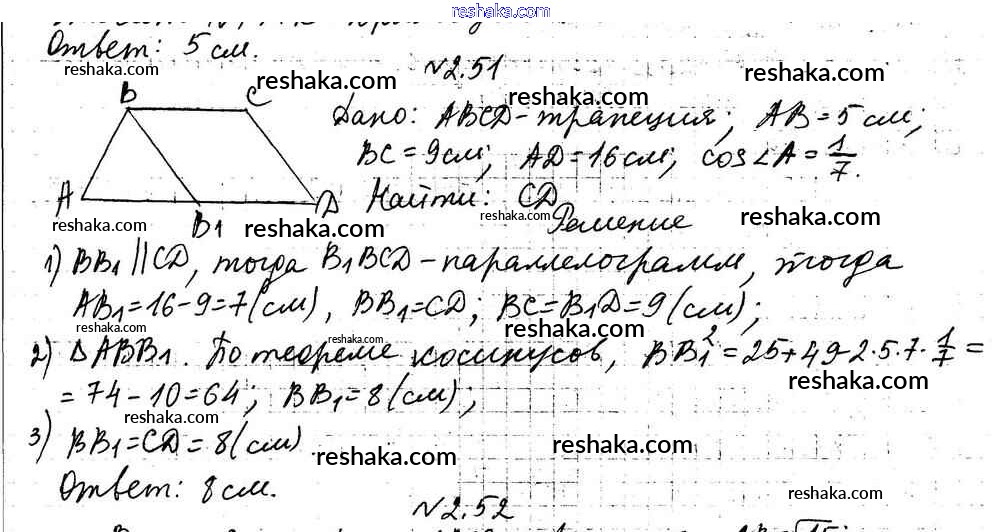 reshaka.com
Ответ: 5 см.
reshaka.com
№2.51
reshaka.com
reshaka.com
reshaka.com
B C
Дано: ABCD-трапеция; AB=5 см;
BC=9см; AD=16см; cos∠A=1/7.
A B1 D
Найти: CD
reshaka.com reshaka.com reshaka.com reshaka.com
Решение
1) BB1||CD, тогда B1BCD-параллелограмм, тогда
AB1=16-9=7(см), BB1=CD; BC=B1D=9(см);
reshaka.com reshaka.com reshaka.com
2) △ABB1. По теореме косинусов, BB1²=25+49-2·5·7·1/7=
=74-10=64; BB1=8(см);
reshaka.com
reshaka.com
3) BB1=CD=8(см)
reshaka.com reshaka.com
Ответ: 8 см.
№2.52
reshaka.com